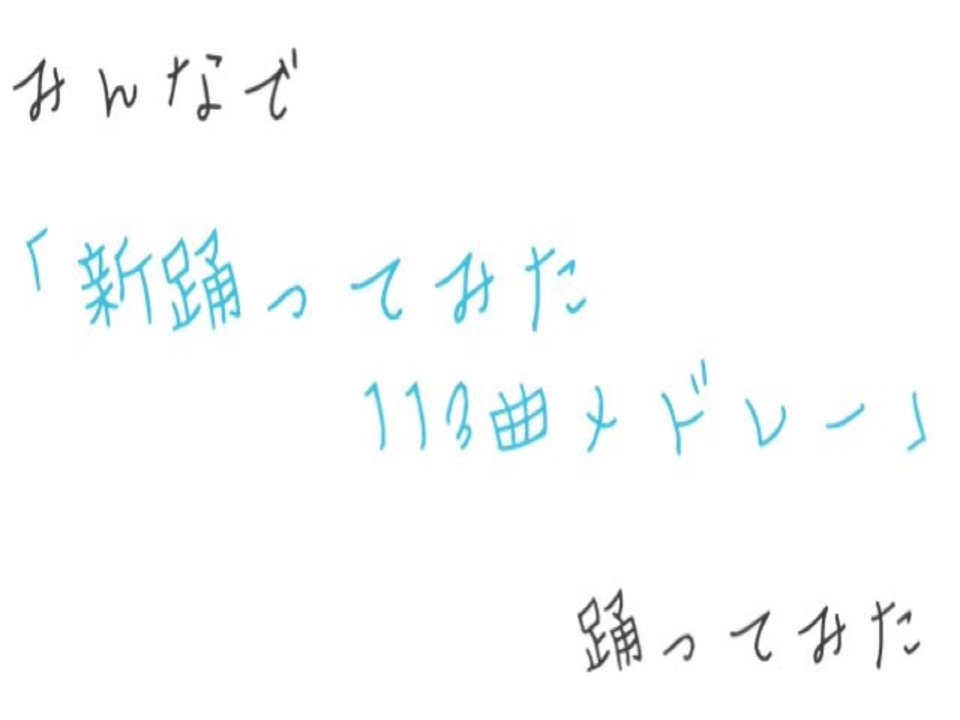 みんなで
「新踊ってみた
113曲メドレー」
踊ってみた